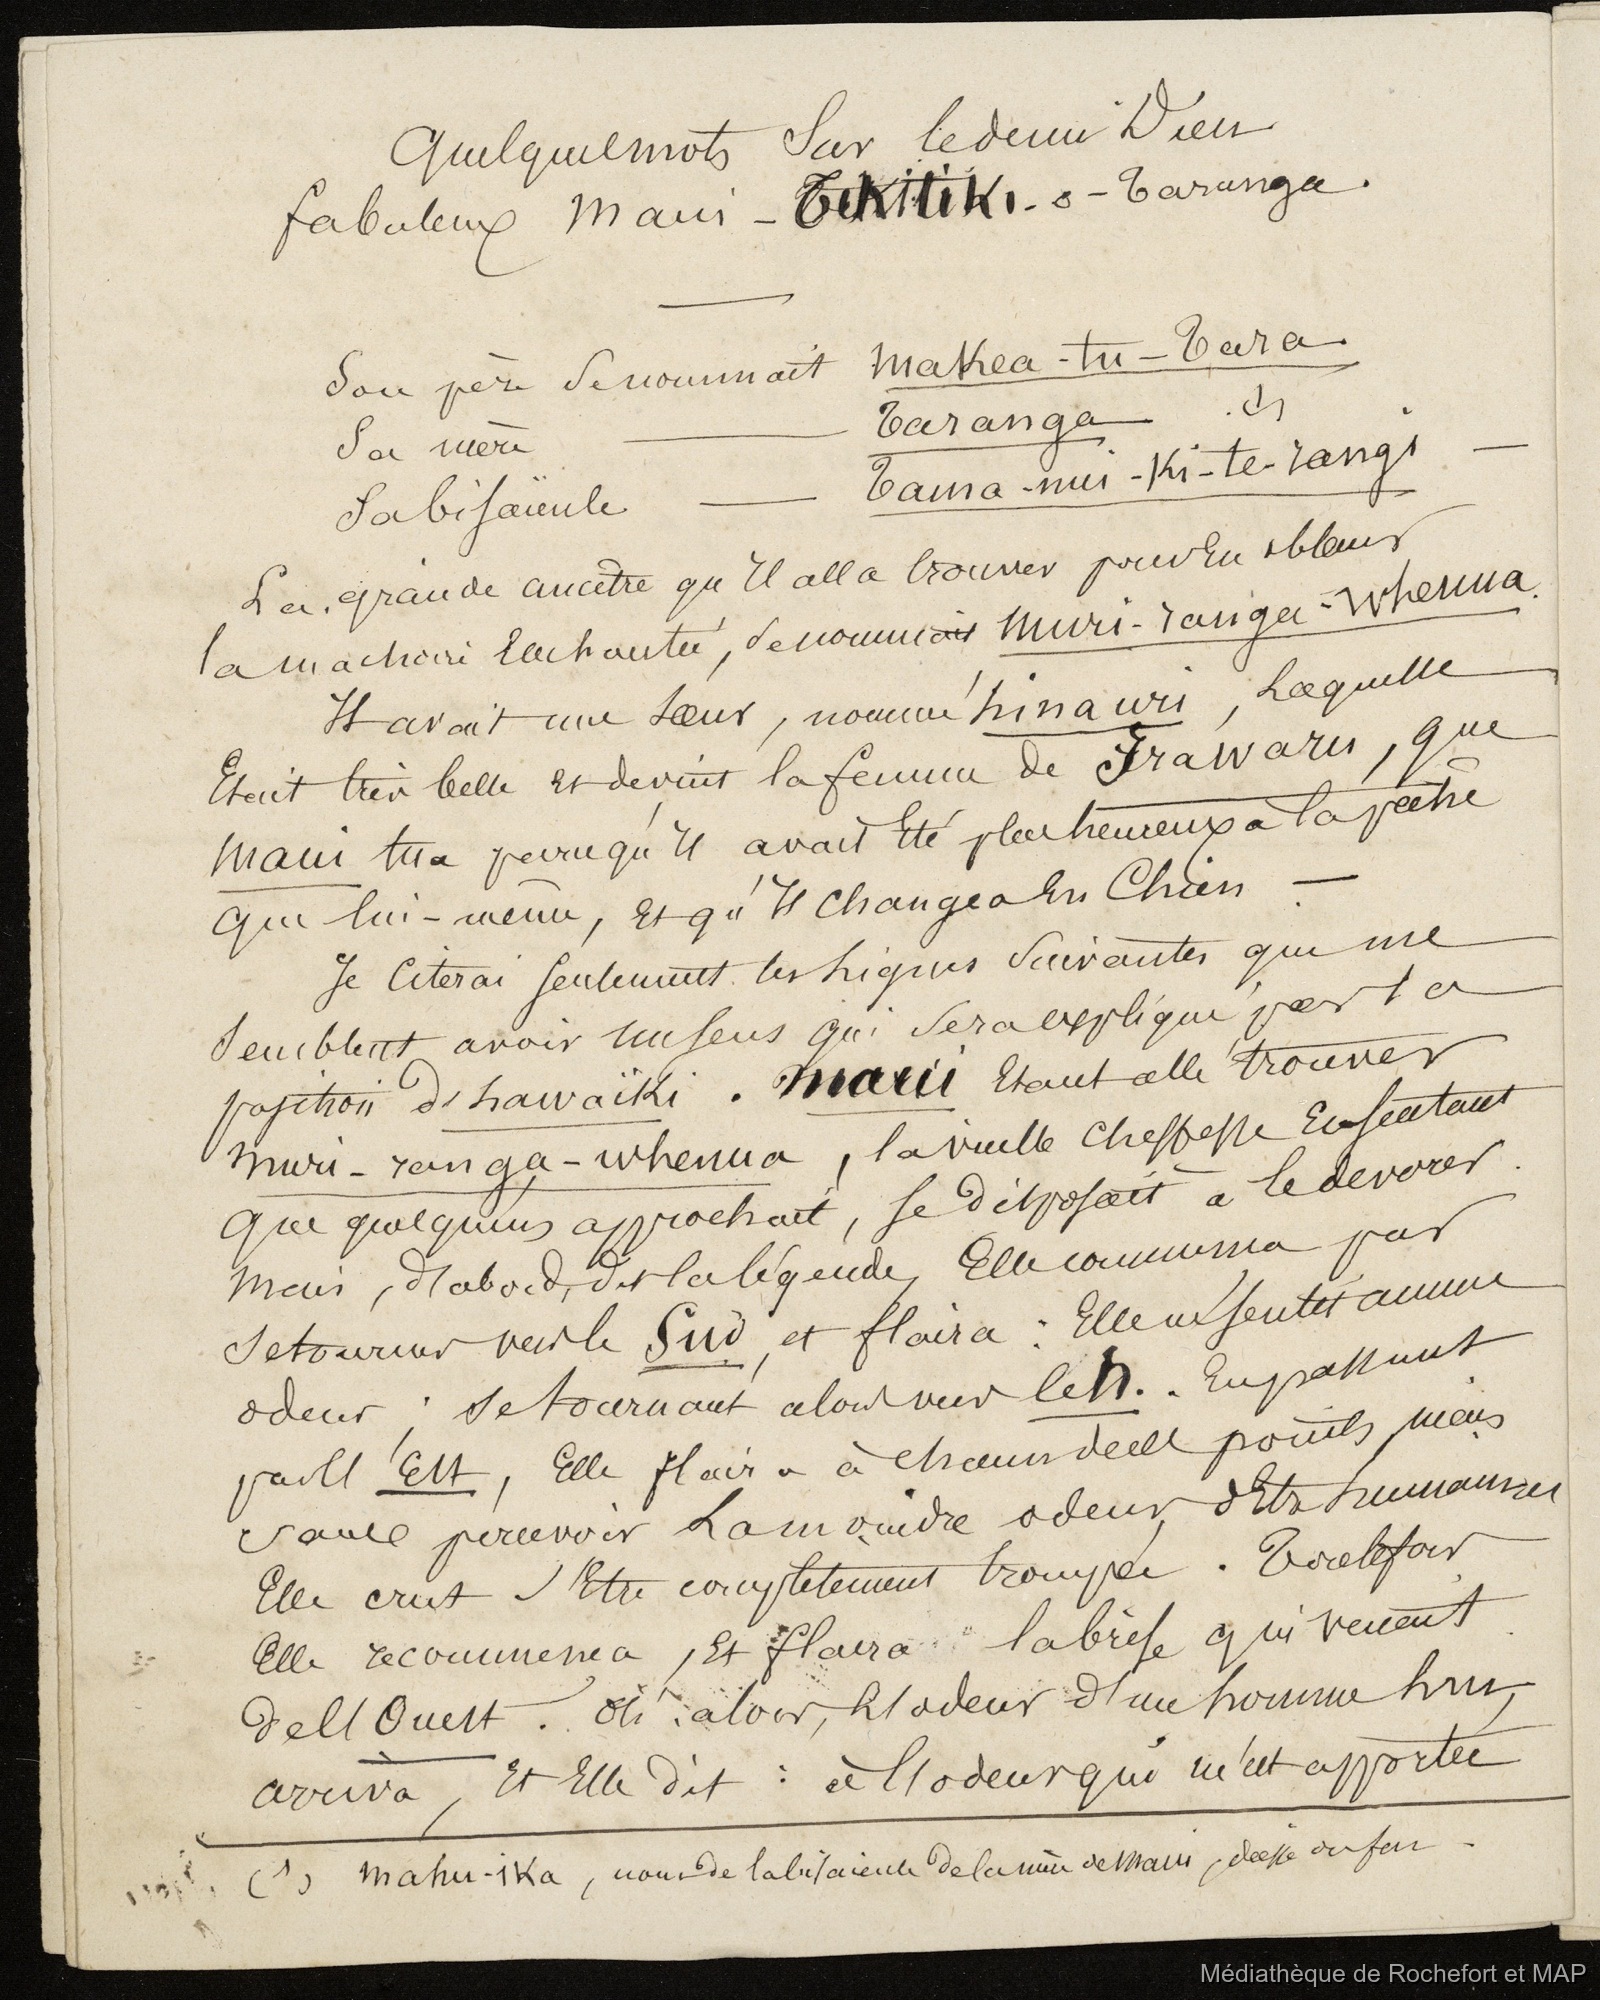 Quelques mots sur le demi Dieu
fabuleux Maui - Tikitiki - o - Taranga.
Son père se nommait Makea-tu-Tara.
Sa mère — Taranga — (1)
Sa bisaïeule — Tama-nui-ki-te-rangi —
La grande ancêtre qu'Il alla trouver pour En obtenir
la machoire Enchantée, se nommait Muri-ranga-Whenua.
Il avait une sœur, nommée hinauri, Laquelle
Etait très belle Et devint la femme de Irawaru, que
Maui tua parcequ'Il avait Eté plus heureux à la pêche
que lui-même, Et qu'Il changea En Chien —
Je Citerai seulement les lignes suivantes qui me
semblent avoir un sens qui sera expliqué par la
position d'hawaïki. Maui Etant allé trouver
Muri-ranga-whenua, la vieille cheffesse En sentant
que quelqu'un approchait, se disposait à le devorer.
Mais, d'abord, dit la légende, Elle commença par
se tourner vers le Sud, et flaira : Elle ne sentit aucune
odeur ; se tournant alors vers le N. En passant
par l'Est, Elle flaira à chacun de ces points, mais
sans percevoir La moindre odeur d'Etre humain ;
Elle crut s'Etre complètement trompée. Toutefois
Elle recommença, Et flaira la brise qui venait
de l'Ouest. Oh ! alors, l'odeur d'un homme lui
arriva, Et Elle dit : à l'odeur qui m'est apportée
(1) Mahu-ika, nom de la bisaieule de la mère de Maui, déesse du feu —
Médiathèque de Rochefort et MAP